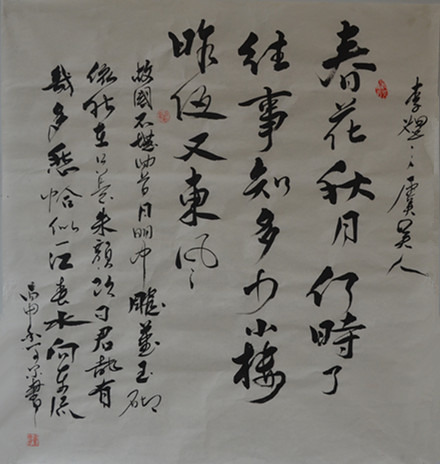 李煜之虞美人
春花秋月何時了
往事知多少小樓
昨夜又東風
故國不堪回首月明中雕蘭玉砌
依然在只是朱顏改问君能有
幾多愁恰似一江春水向東流